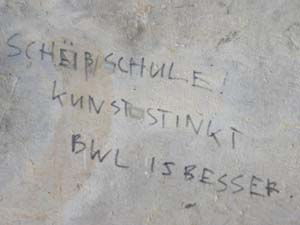 SCHEIß SCHULE!
KUNST STINKT
BWL IS BESSER.